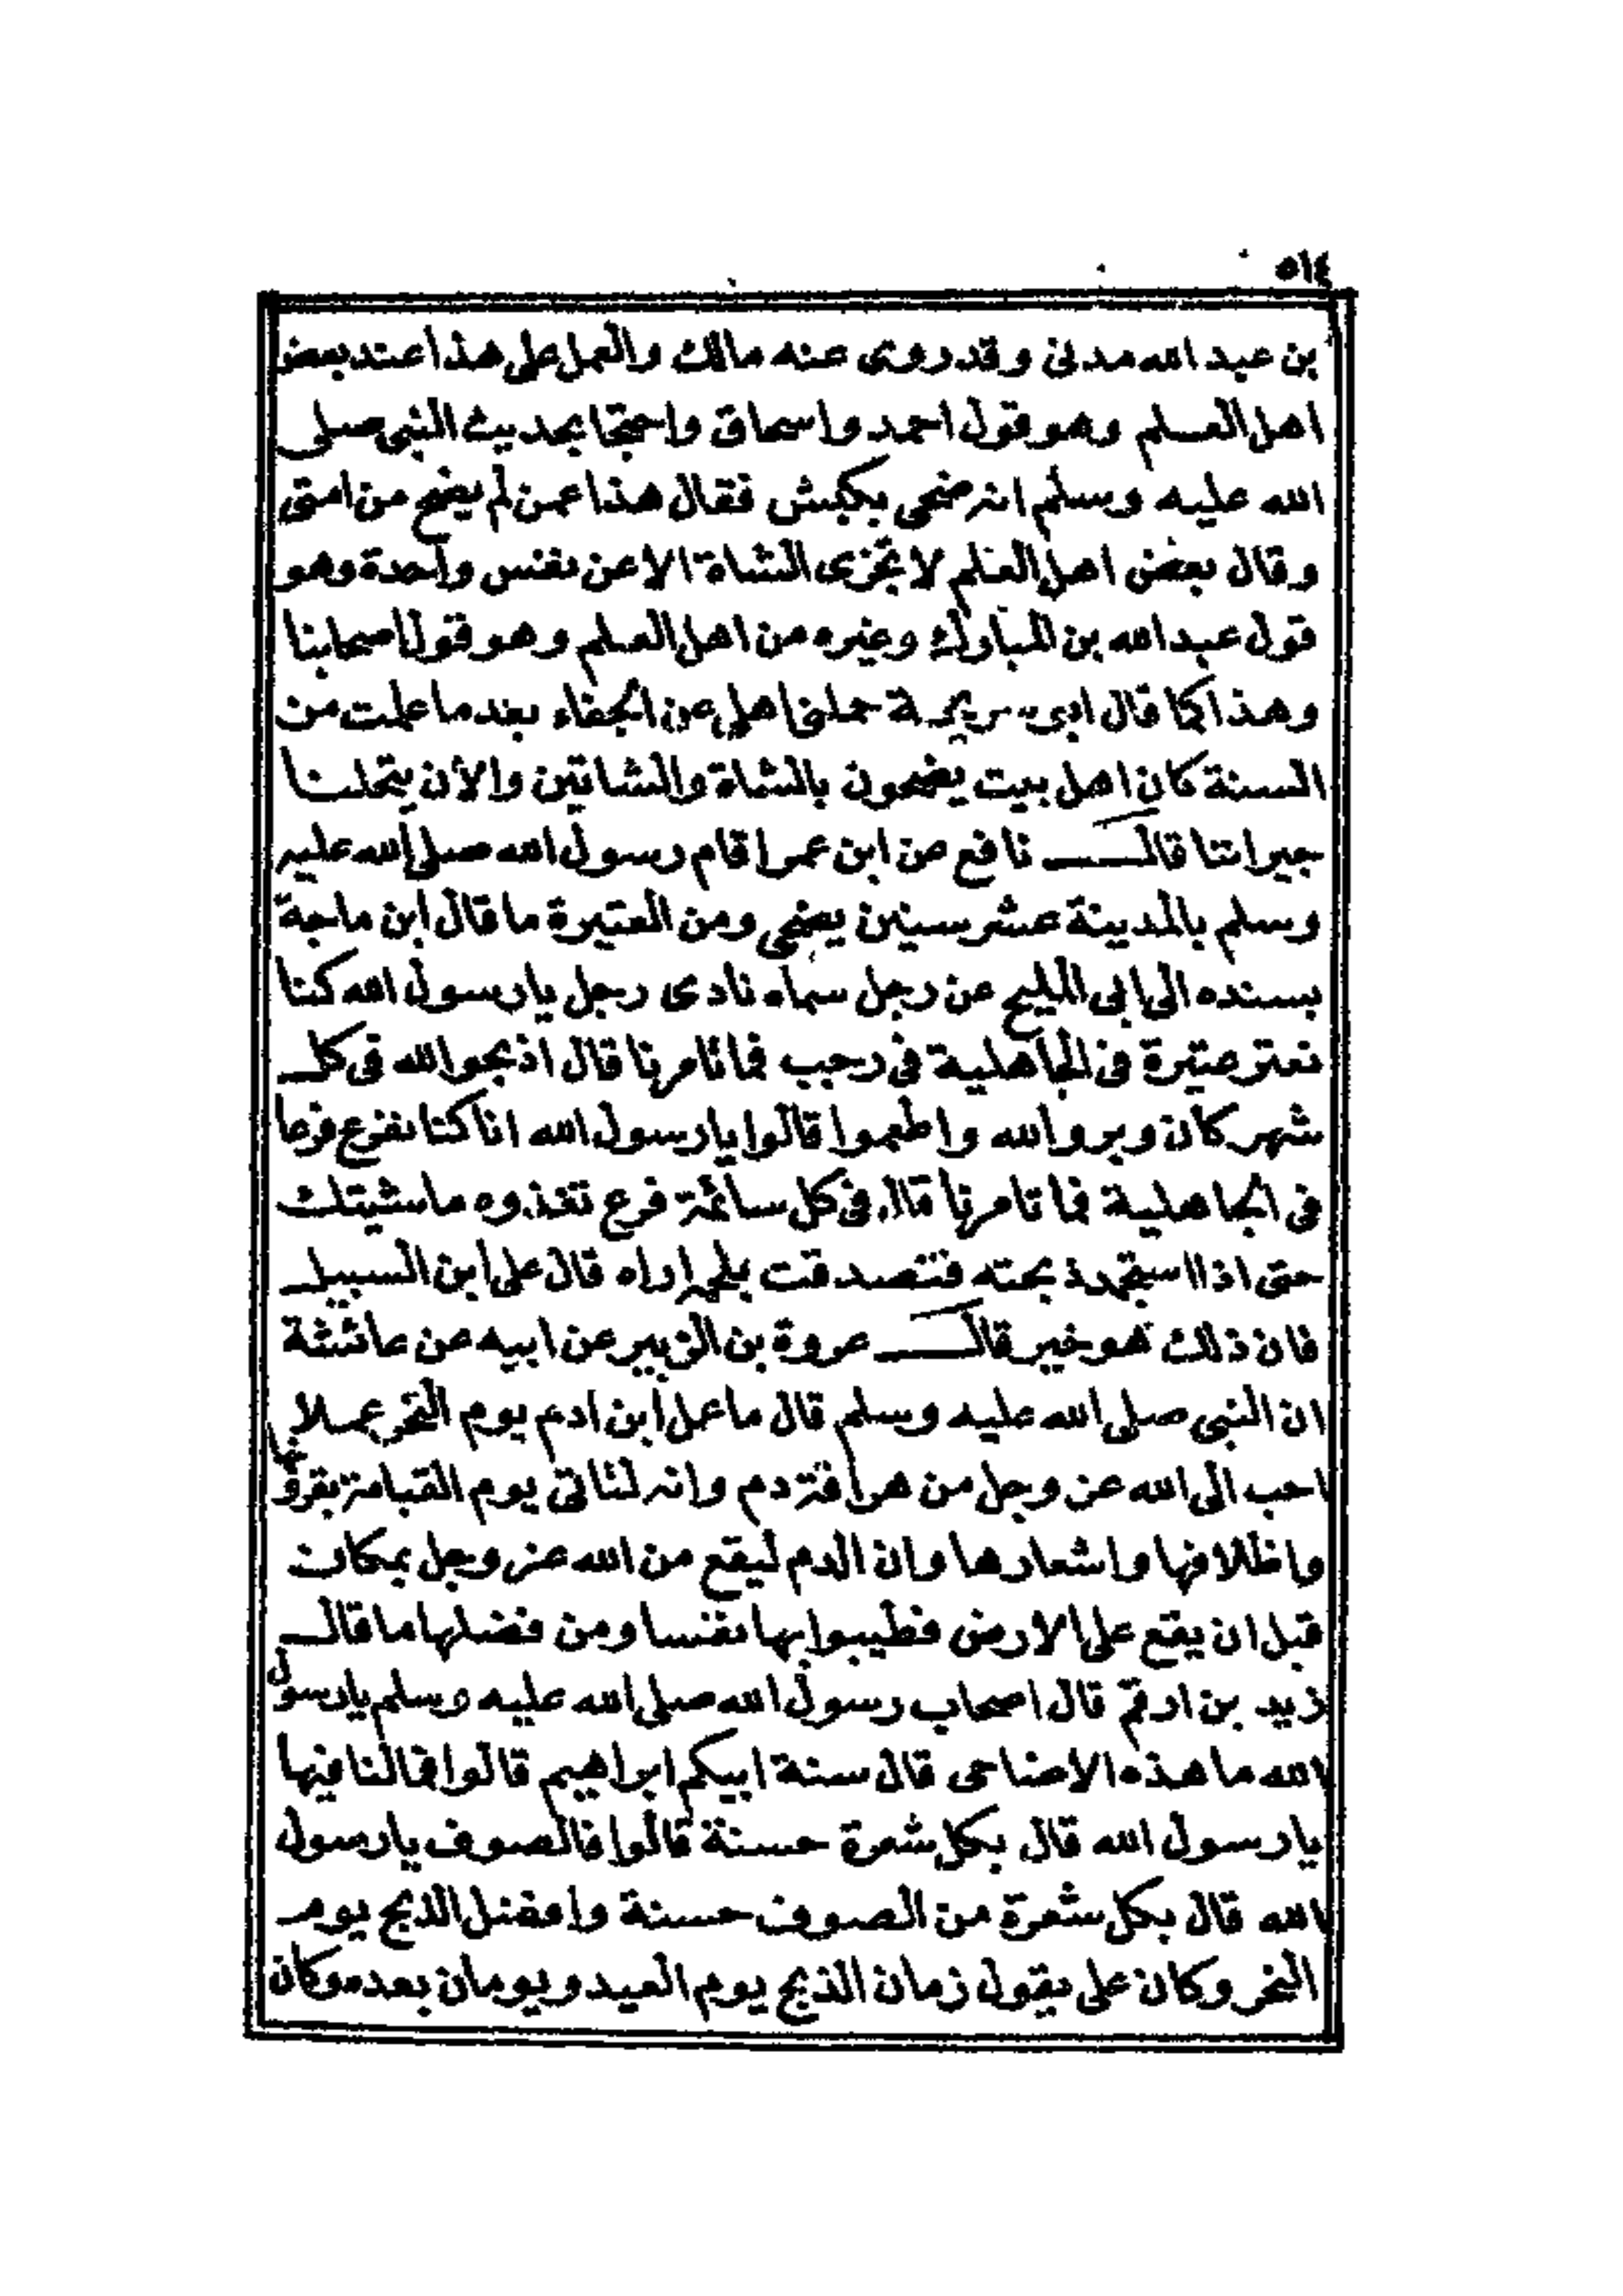 ٥١٤
بن عبد الله مدنى وقد روى عنه مالك والعمل على هذا عند بعض
اهل العلم وهو قول احمد واسحاق واحتجا بحديث النبى صلى
الله عليه وسلم انه ضحى بكبش فقال هذا عمن لم يضح من امتى
وقال بعض اهل العلم لا تجزى الشاة الا عن نفس واحدة وهو
قول عبد الله بن المبارك وغيره من اهل العلم وهو قول اصحابنا
وهذا كما قال ابى سريحة حملنى اهلى عن الجفاء بعد ما علمت من
السنة كان اهل بيت يضحون بالشاة والشاتين والأن يبخلنا
جيراننا قال نافع عن ابن عمر اقام رسول الله صلى الله عليه
وسلم بالمدينة عشر سنين يضحى ومن العتيرة ما قال ابن ماجة
بسنده الى ابى المليح عن رجل سماه نادى رجل يا رسول الله كنا
نعتر عتيرة فى الجاهلية فى رجب فما تامرنا قال اذبحوا لله فى كل
شهر كان وبروا لله واطعموا قالوا يا رسول الله انا كنا نفرع فرعا
فى الجاهلية فما تامرنا قال فى كل سائمة فرع تغذوه ما شيتك
حتى اذا استجمر ذبحته فتصدقت بلحمه اراه قال على ابن السبيل
فان ذلك هو خير قال عروة بن الزبير عن ابيه عن عائشة
ان النبى صلى الله عليه وسلم قال ما عمل ابن ادم يوم النحر عملا
احب الى الله عز وجل من هراقة دم وانه لتاتى يوم القيامة بقرونها
واظلافها واشعارها وان الدم ليقع من الله عز وجل بمكان
قبل ان يقع على الارض فطيبوا بها نفسا ومن فضلها ما قال
زيد بن ارقم قال اصحاب رسول الله صلى الله عليه وسلم يا رسول
الله ما هذه الاضاحى قال سنة ابيكم ابراهيم قالوا فما لنا فيها
يا رسول الله قال بكل شعرة حسنة قالوا فالصوف يا رسول
الله قال بكل شعرة من الصوف حسنة وافضل الذبح يوم
النحر وكان على يقول زمان الذبح يوم العيد ويومان بعده وكان